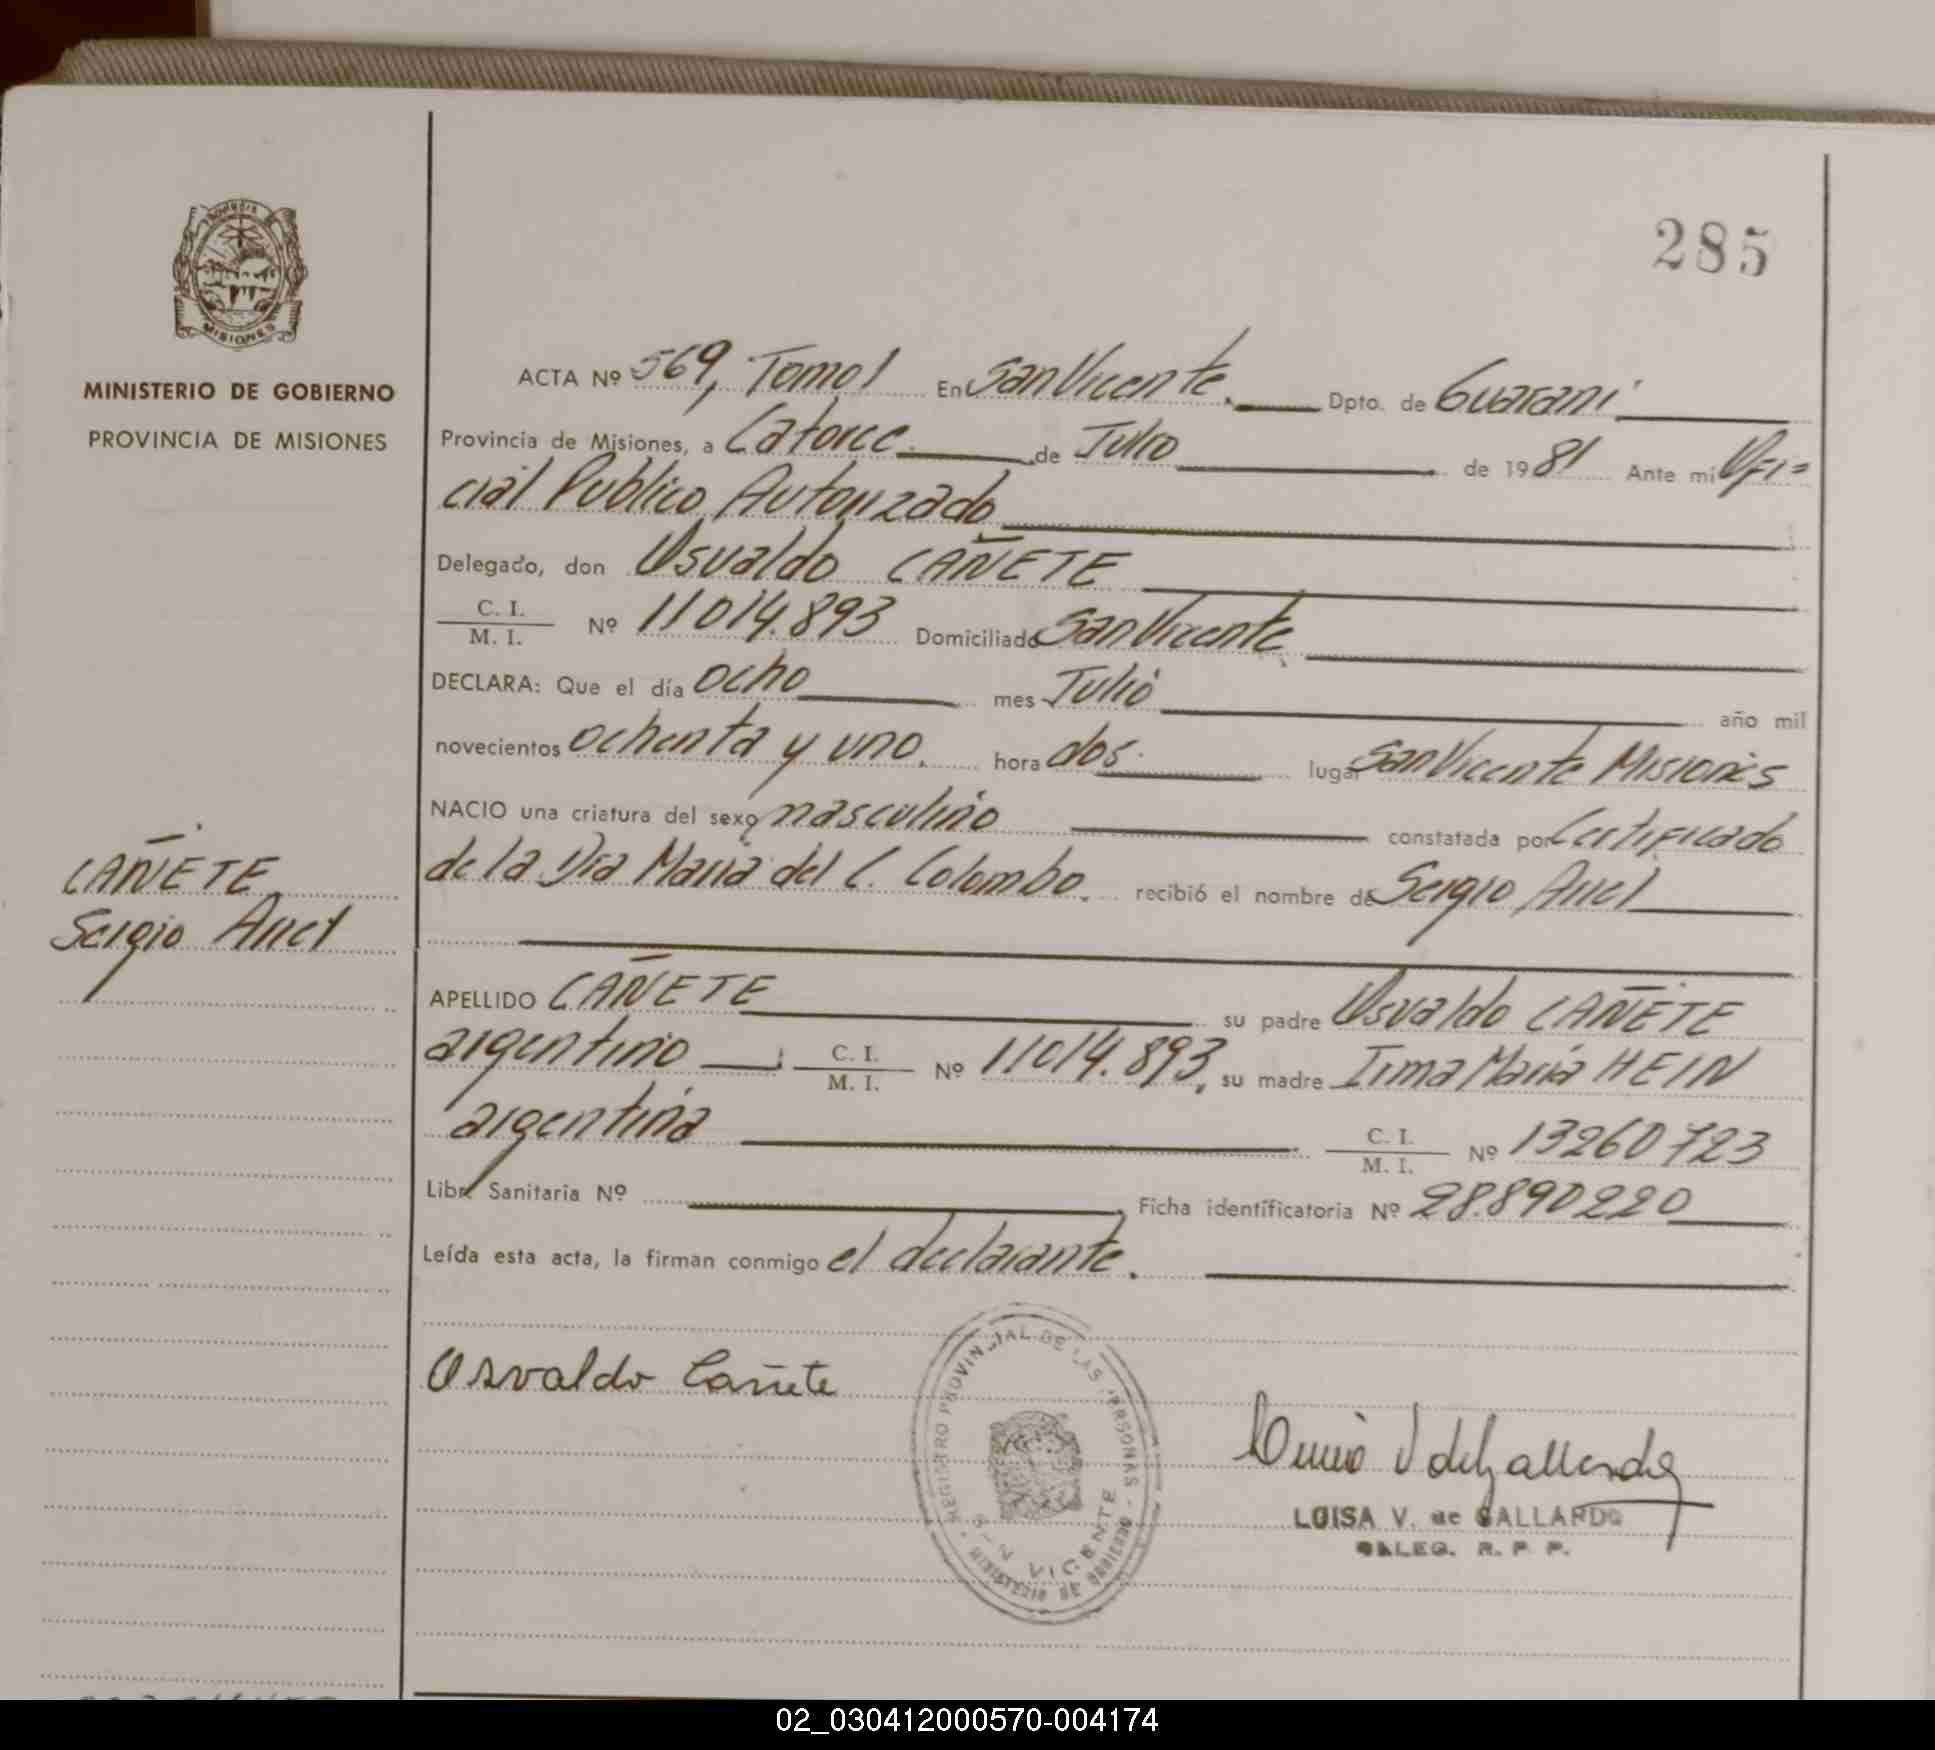 285
MINISTERIO DE GOBIERNO
PROVINCIA DE MISIONES
CAÑETE
Sergio Ariel
ACTA Nº 569, Tomo I En San Vicente. Dpto. de Guarani
Provincia de Misiones, a Catorce de Julio de 1981 Ante mi Ofi=
cial Publico Autorizado
Delegado, don Osvaldo CAÑETE
C. I.
M. I. Nº 11014.893 Domiciliado San Vicente.
DECLARA: Que el día ocho mes Julio año mil
novecientos ochenta y uno. hora dos. lugar San Vicente Misiones
NACIO una criatura del sexo masculino constatada por Certificado
de la Dra Maria del C. Colombo. recibió el nombre de Sergio Ariel
APELLIDO CAÑETE su padre Osvaldo CAÑETE
argentino C. I.
M. I. Nº 11014.893, su madre Irma Maria HEIN
argentina C. I.
M. I. Nº 13260723
Libr. Sanitaria Nº , Ficha identificatoria Nº 28.890220
Leída esta acta, la firman conmigo el declarante.
Osvaldo Cañete
REGISTRO PROVINCIAL DE LAS PERSONAS
SAN VICENTE
LUISA V. de GALLARDO
DELEG. R. P. P.
02_030412000570-004174